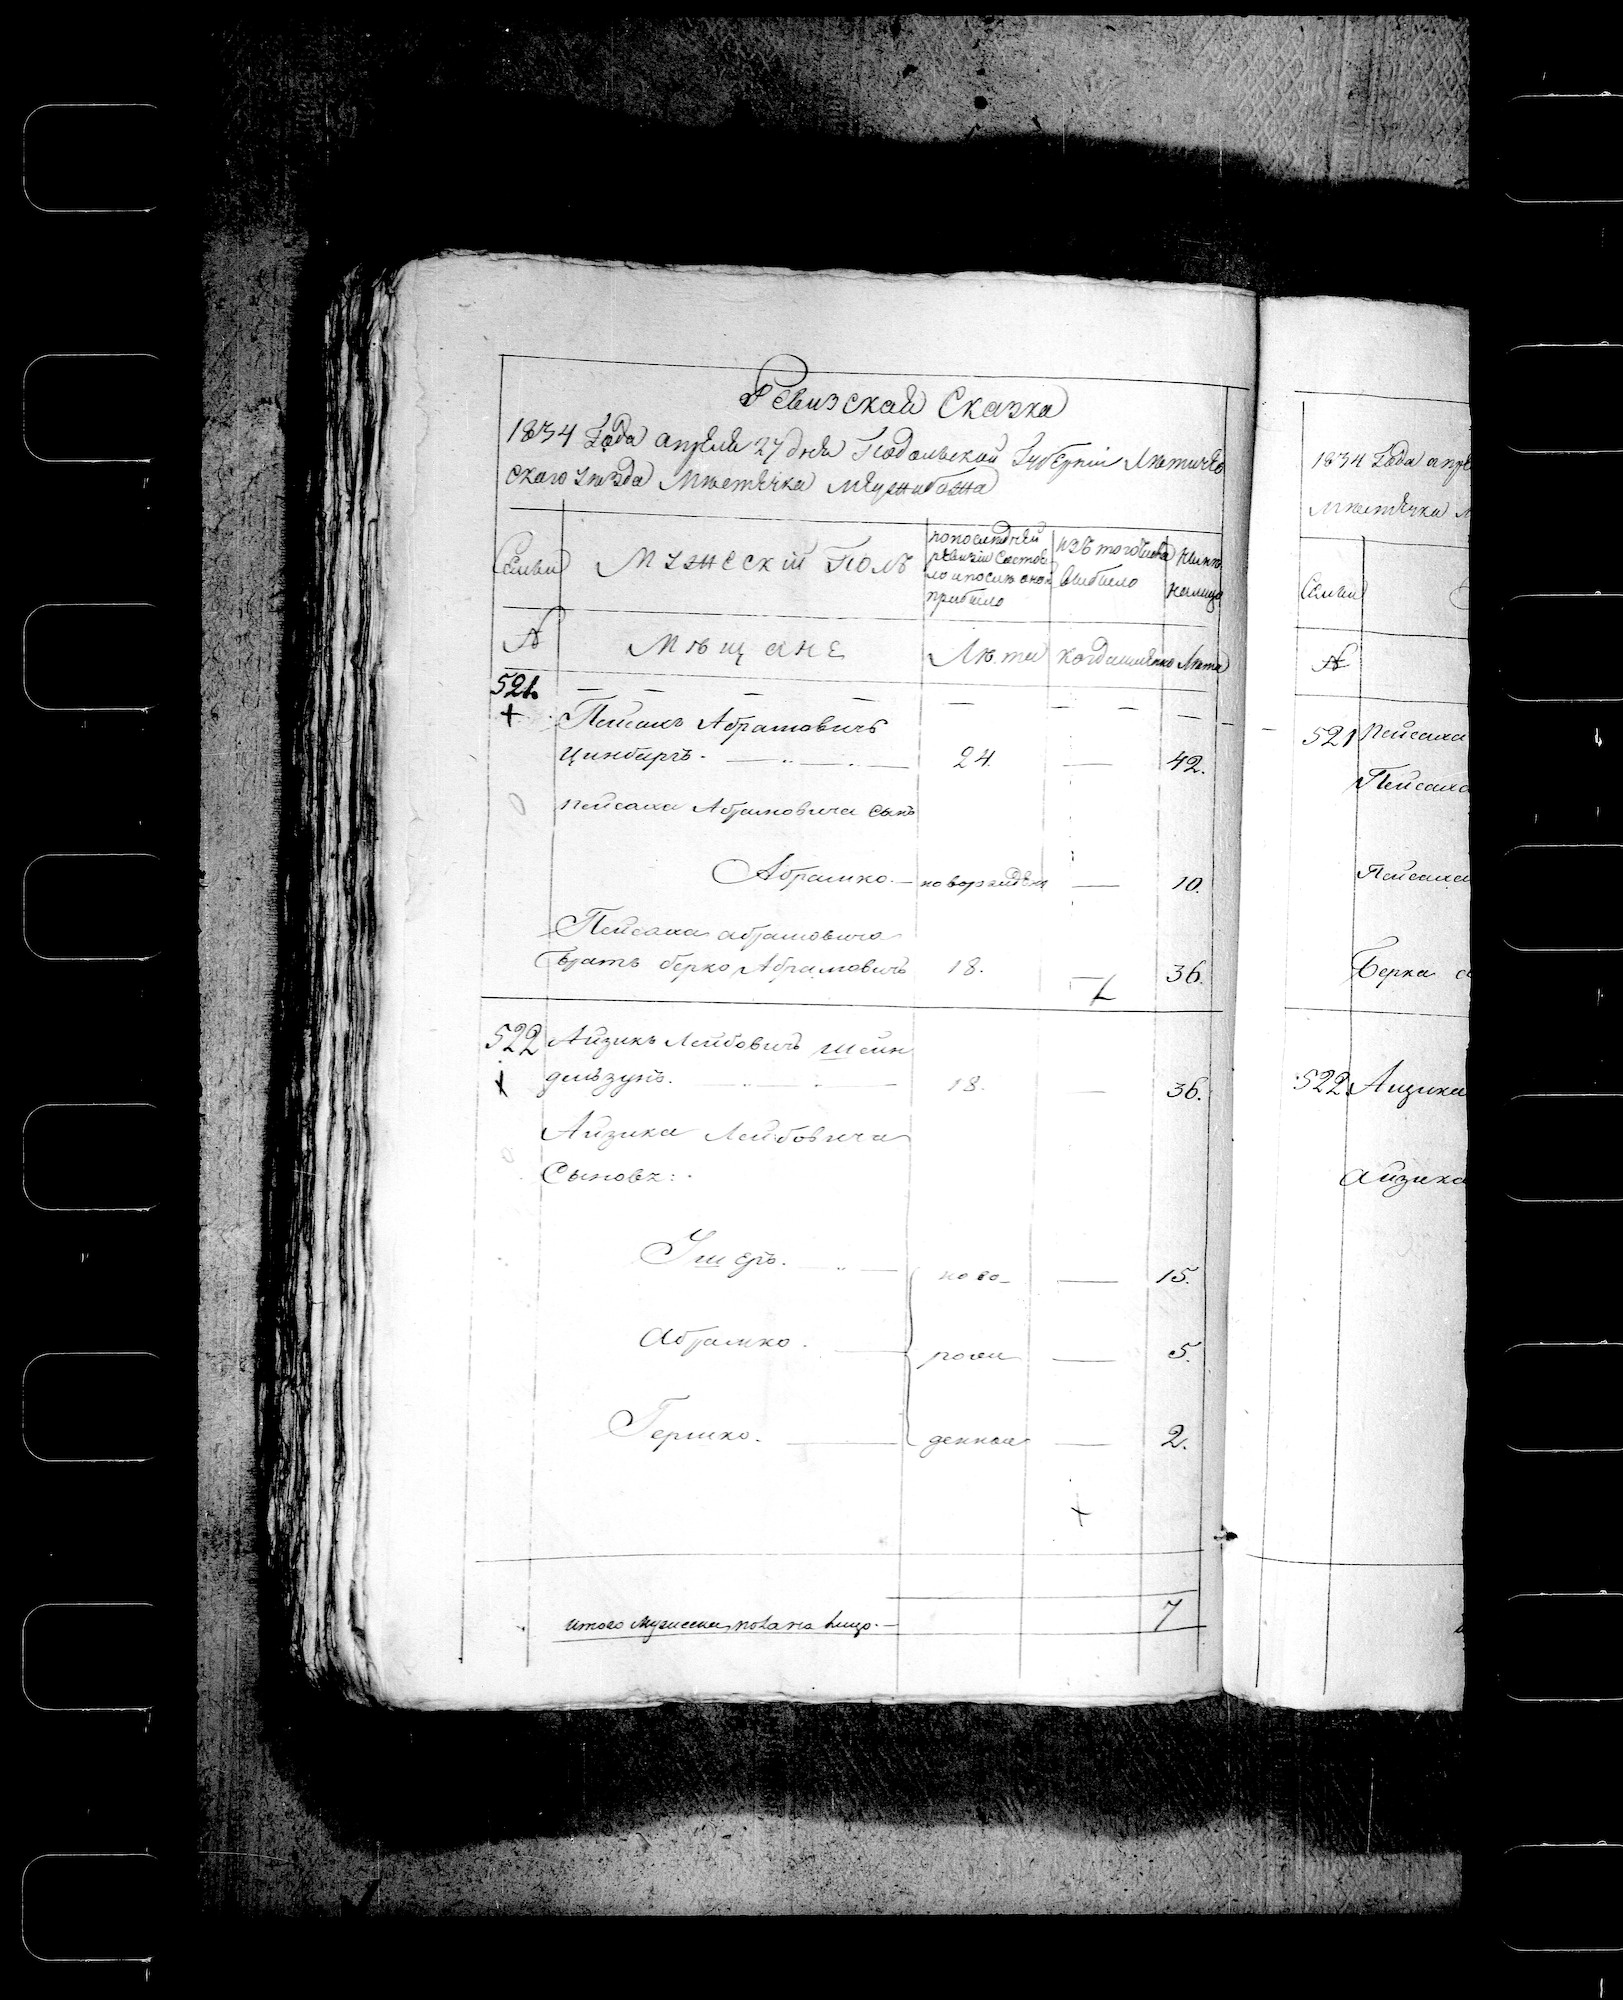 Ревизская Сказка
1834 Года апреля 27 дня Подольской Губерніи Летиче
скаго уѣзда Мѣстечка Межибожа
Семьи
МУЖЕСКІЙ ПОЛЪ
попоследней
ревизіи состоя
ло и после оной
прибыло
изъ того числа
выбыло
ныне
налицо
№
Мѣщане
Лѣты
когда именно
Лета
521.
Пейсахъ Абрамовичъ
Цинбергъ. 24. — 42.
Пейсаха Абрамовича сынъ
Абрамко. — новорожден — 10.
Пейсаха абрамовича
братъ берко Абрамовичъ 18. — 36.
522 Айзикъ Лейбовичъ шейн
дельзунъ. 18. — 36.
Айзика Лейбовича
Сыновья:
Ушеръ. ново — 15.
Абрамко. рож — 5.
Гершко. денные — 2.
итого Мужеска пола на лицо. — 7
1834 Года апре
Мѣстечка М
Семьи
№
521 Пейсаха
Пейсаха
Пейсаха
Берка а
522 Айзика
Айзика